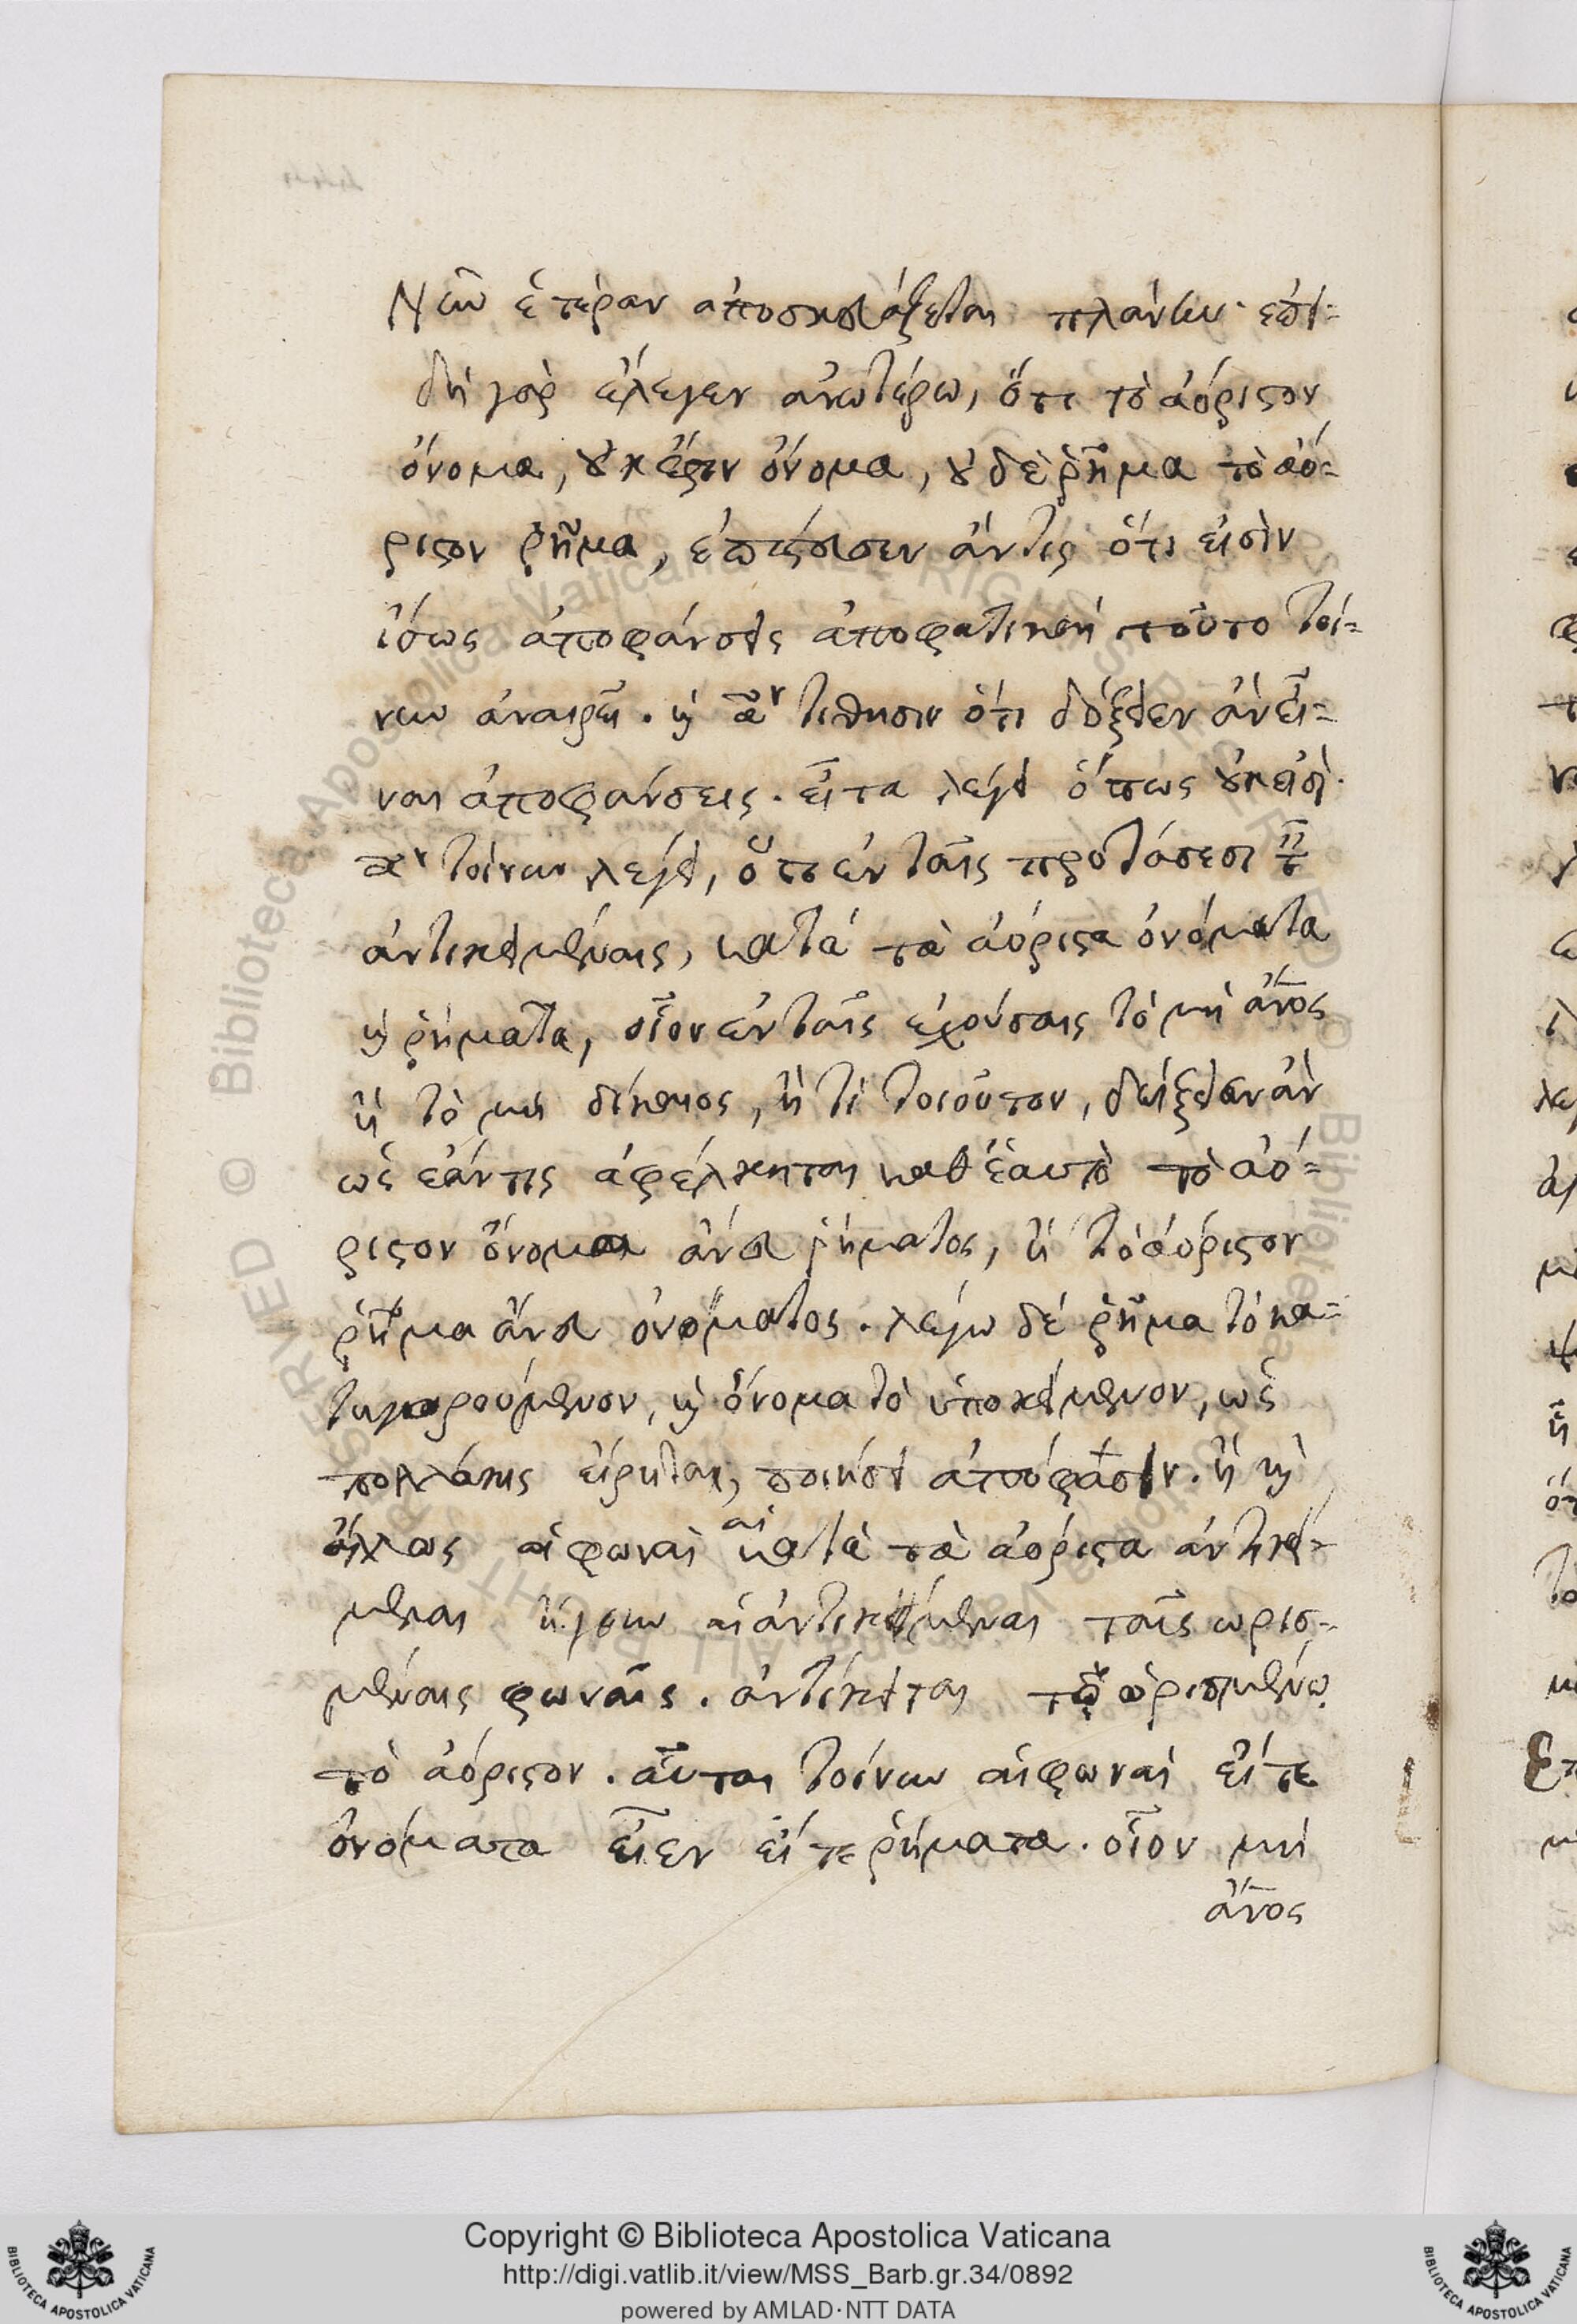 Νῦν ἑτέραν ἀποσκευάζεται πλάνην· ἐπει=
δὴ γὰρ ἔλεγεν ἀνωτέρω, ὅτι τὸ ἀόριστον
ὄνομα, οὐκ ἔστιν ὄνομα, οὐδὲ ῥῆμα τὸ ἀό=
ριστον ῥῆμα, ἐπίστευσεν ἄν τις ὅτι εἰσὶν
ἴσως ἀποφάνσεις ἀποφατικαί τοῦτο τοί=
νυν ἀναιρεῖ. καὶ αον τίθησιν ὅτι δόξειεν ἂν εἶ=
ναι ἀποφάνσεις. εἶτα λέγει ὅπως οὐκ εἰσί.
αον τοίνυν λέγει, ὅτι ἐν ταῖς προτάσεσι
ἀντικειμέναις, κατά τὰ ἀόριστα ὀνόματα
καὶ ῥήματα, οἷον ἐν ταῖς ἐχούσαις τὸ μὴ ἄνος
ἢ τὸ μὴ δίκαιος, ἤ τι τοιοῦτον, δόξειεν ἂν
ὡς ἐάν τις ἀφέλκηται καθ' ἑαυτὸ τὸ ἀό=
ριστον ὄνομα ἄνευ ῥήματος, ἢ τὸ ἀόριστον
ῥῆμα ἄνευ ὀνόματος. λέγω δέ ῥῆμα τὸ κα=
τηγορούμενον, καὶ ὄνομα τὸ ὑποκείμενον, ὡς
πολλάκις εἴρηται, ποιήσει ἀπόφασιν. ἢ καὶ
ἄλλως αἱ φωναὶ αἱ κατὰ τὰ ἀόριστα ἀντικεί=
μεναι ἤγουν αἱ ἀντικείμεναι ταῖς ὡρισ=
μέναις φωναῖς. ἀντίκειται τῷ ὁρισμένῳ
τὸ ἀόριστον. αὗται τοίνυν αἱ φωναὶ εἴτε
ὀνόματα εἶεν εἴτε ῥήματα. οἷον μή
ἄνος
Copyright © Biblioteca Apostolica Vaticana
http://digi.vatlib.it/view/MSS_Barb.gr.34/0892
powered by AMLAD·NTT DATA